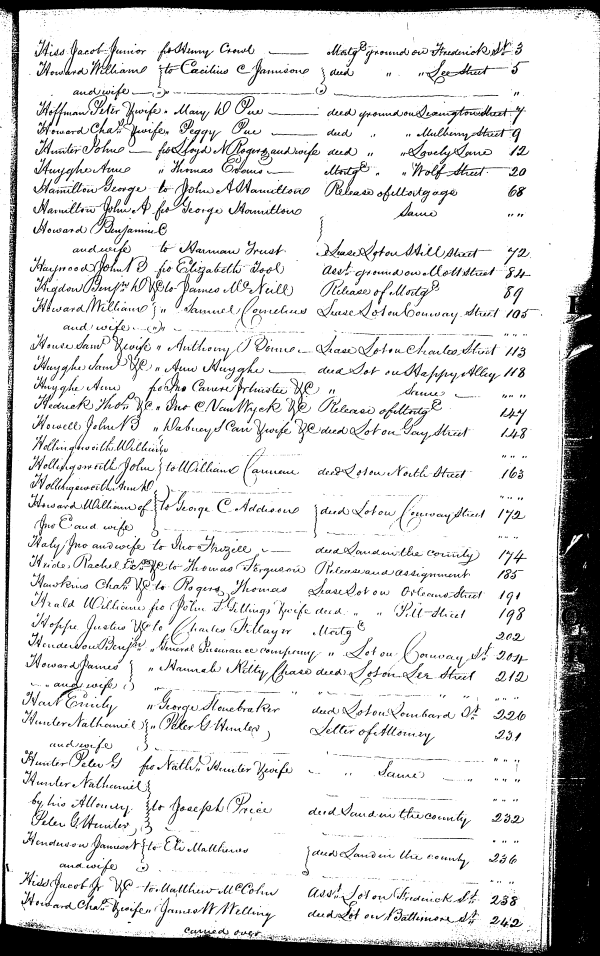 Hiss Jacob Junior fro Henry Crowl — Mortgᵉ ground on Frederick Sᵗ 3
Howard William } to Cacilius C Jamison } deed " " Lee Street 5
and wife "
Hoffman Peter & wife " Mary D Pue — deed ground on Lexington Street 7
Howard Chaˢ & wife " Peggy Pue — deed " " Mulberry Street 9
Hunter John — fro Lloyd N Rogers and wife deed " " Lovely Lane 12
Huyghe Ann " Thomas Evans — Mortgᵉ " " Wolf Street 20
Hamilton George to John A Hamilton Release of Mortgage 68
Hamilton John A fro George Hamilton Same " "
Howard Benjamin C }
and wife to Harman Trust Lease Lot on Hill Street 72
Haywood John B fro Elizabeth Tool Assᵗ ground on Mott street 84
Higdon Benjⁿ D &C to James McNeill Release of Mortgᵉ 89
Howard William } " Samuel Cornelius Lease Lot on Conway Street 105
and wife " " "
House Samˡ & wife " Anthony Bonn — Lease Lot on Charles Street 113
Huyghe Samˡ &C " Ann Huyghe — deed Lot on Happy Alley 118
Huyghe Ann fro Jno Carrere Trustee &C " Same — " " "
Hedrick Thoˢ &C " Jno C Van Wyck &C Release of Mortgᵉ 147
Howell John B " Dabney S Carr & wife &C deed Lot on Gay Street 148
Hollingsworth William " " "
Hollingsworth John } to William Carman deed Lot on North Street 163
Hollingsworth Ann D " " "
Howard William of } to George C Addison } deed Lot on Conway Street 172
Jno E and wife " " "
Haly Jno and wife to Jno Frizell " — deed Land in the county 174
Hride Rachel Exˣ &C to Thomas Ferguson Release and assignment 185
Hawkins Chaˢ &C to Rogers Thomas Lease Lot on Orleans Street 191
Hrald William fro John S Gittings & wife deed " " Pitt Street 198
Hoppe Justus &C to Charles Tilyard Mortgᵉ 202
Henderson Benjaⁿ " General Insurance company " Lot on Conway Sᵗ 204
Howard James } " Hannah Kitty Chase deed Lot on Lee Street 212
" and wife " " " " "
Hart Emily " George Stonebraker deed Lot on Lombard Sᵗ 226
Hunter Nathaniel } " Peter G Hunter Letter of Attorney 231
and wife " " "
Hunter Peter G fro Nathˡ Hunter & wife " Same " " " "
Hunter Nathaniel " " "
by his Attorney } to Joseph Price deed Land in the county 232
Peter G Hunter " " "
Henderson James N } to Eli Matthews } deed Land in the county 236
and wife " " "
Hiss Jacob Jr &C to Matthew McColm Assᵗ Lot on Frederick Sᵗ 238
Howard Chaˢ & wife " James W Welling deed Lot on Baltimore Sᵗ 242
carried over